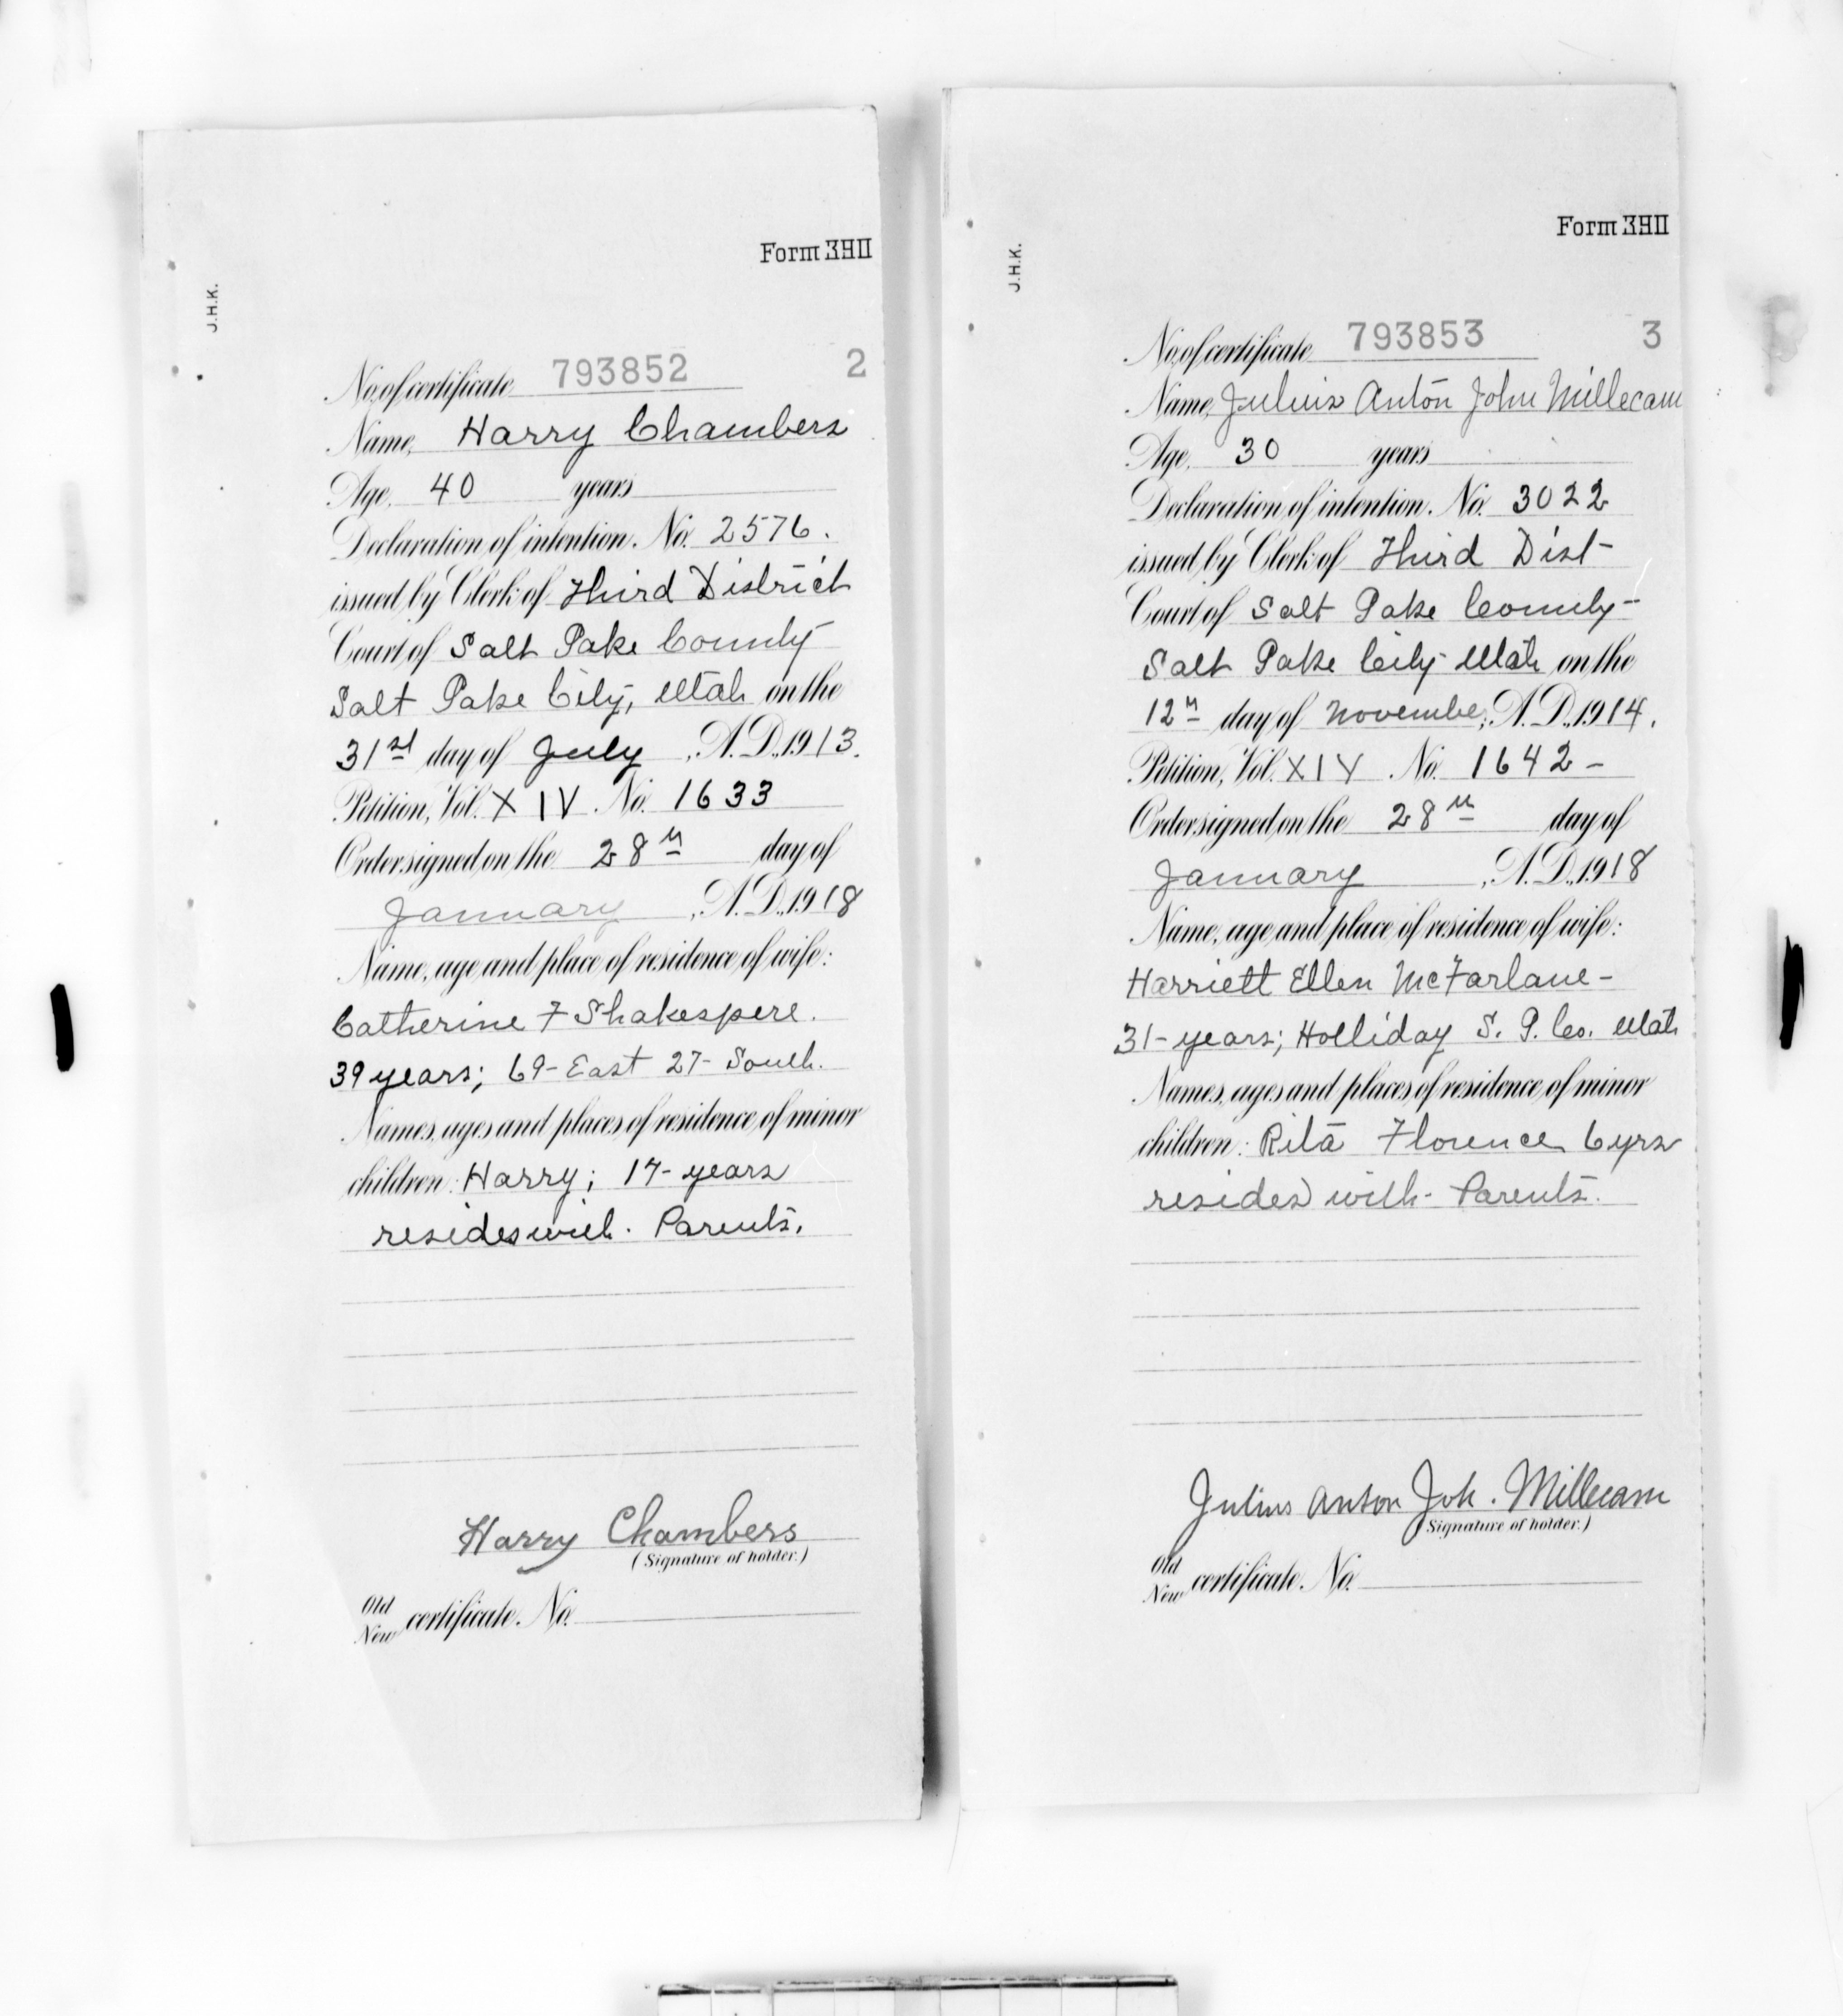 Form 390
J.H.K.
No. of certificate 793852 2
Name, Harry Chambers
Age, 40 years
Declaration of intention, No. 2576.
issued by Clerk of Third District
Court of Salt Lake County
Salt Lake City, Utah on the
31st day of July, A.D. 1913.
Petition, Vol. XIV No. 1633
Order signed on the 28th day of
January, A.D. 1918
Name, age and place of residence of wife:
Catherine F Shakespere.
39 years; 69-East 27-South.
Names, ages and places of residence of minor
children: Harry; 17-years
resides with. Parents.
Harry Chambers
(Signature of holder.)
Old
New certificate, No.
Form 390
J.H.K.
No. of certificate 793853 3
Name, Julius Anton John Millecam
Age, 30 years
Declaration of intention, No. 3022
issued by Clerk of Third Dist-
Court of Salt Lake County-
Salt Lake City-Utah on the
12th day of November, A.D. 1914.
Petition, Vol. XIV No. 1642-
Order signed on the 28th day of
January, A.D. 1918
Name, age and place of residence of wife:
Harriett Ellen McFarlane-
31-years; Holliday S. L. Co. Utah
Names, ages and places of residence of minor
children: Rita Florence 6yrs
resides with-Parents.
Julius Anton Joh. Millecam
(Signature of holder.)
Old
New certificate, No.